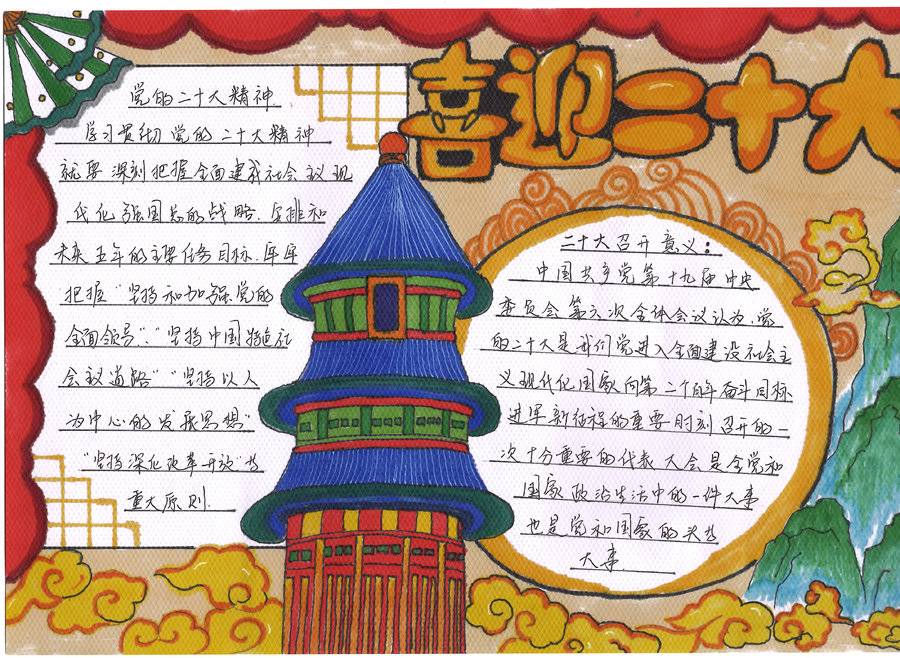 喜迎二十大
党的二十大精神
学习贯彻党的二十大精神
就要深刻把握全面建成社会主义现
代化强国总的战略、安排和
未来五年的主要任务目标、牢牢
把握“坚持和加强党的
全面领导”“坚持中国特色社
会主义道路”“坚持以人
为中心的发展思想”
“坚持深化改革开放”等
重大原则.
二十大召开意义:
中国共产党第十九届中央
委员会第六次全体会议认为,党
的二十大是我们党进入全面建设社会主
义现代化国家向第二个百年奋斗目标
进军新征程的重要时刻召开的一
次十分重要的代表大会是全党和
国家政治生活中的一件大事
也是党和国家的头等
大事